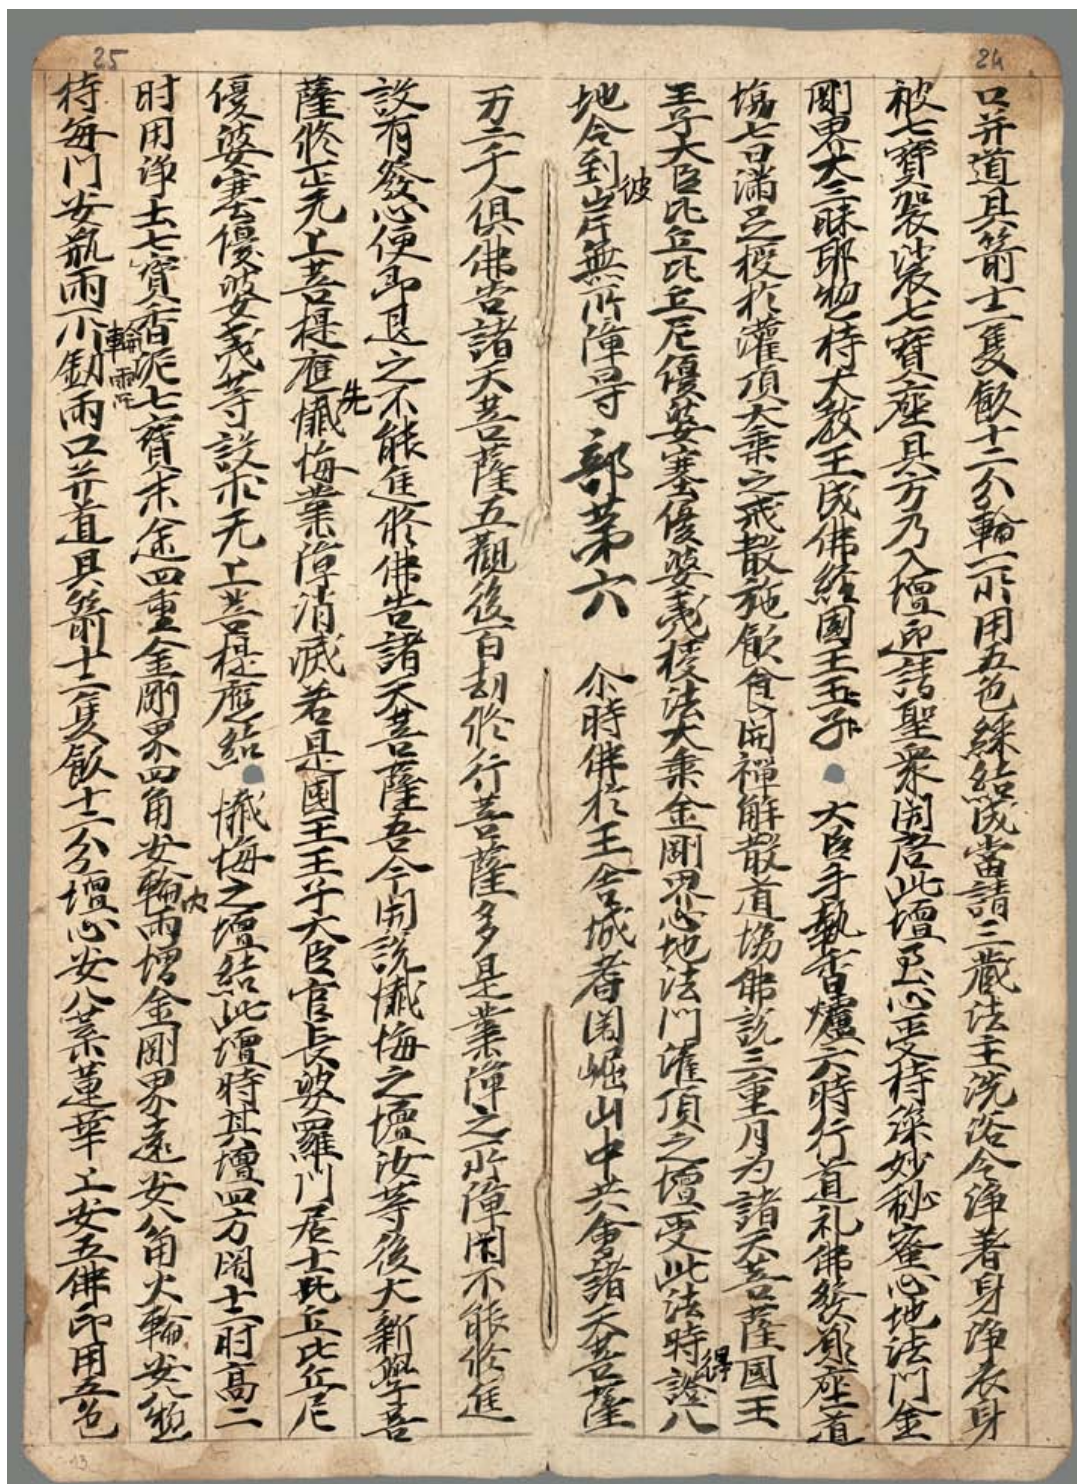 24
口并道具箭十二隻飲十二分輪一所用五色綵結成當請三藏法王洗浴令淨著身淨衣身
被七寶袈裟七寶座具方乃入壇迎請聖衆開啓此壇至心受持深妙秘蜜心地法門金
剛界大三昧耶惣持大教王成佛経國王王子 大臣手執香爐六時行道礼佛發願座道
塲七日滿足授於灌頂大乗之戒散施飲食開禪解散道塲佛說三重月为諸天菩薩國王
王子大臣比丘比丘尼優婆塞優婆夷授法大乗金剛界心地法門灌頂之壇受此法時得證八
地令到彼岸無所障㝵 部苐六 尒時佛於王舎城耆闍崛山中共會諸天菩薩
25
万二千人俱佛告諸天菩薩五觀後百劫修行菩薩多是業障之所障閡不能修進
設有發心便即退之不能進修佛告諸天菩薩吾今開說懺悔之壇汝等後大新學菩
薩修正无上菩提應先懺悔業障消滅若是國王王子大臣官長婆羅門居士比丘比丘尼
優婆塞優婆夷等設求无上菩提應結 懺悔之壇結此壇時其壇四方闊十二肘高二
肘用淨土七寶香泥七寶末塗四重金剛界四角安輪兩增金剛界內遠安八角火輪安八惣
持每門安瓶兩所輪釰兩口并道具箭十二隻飲十二分壇心安八葉蓮華上安五佛印用五色
13